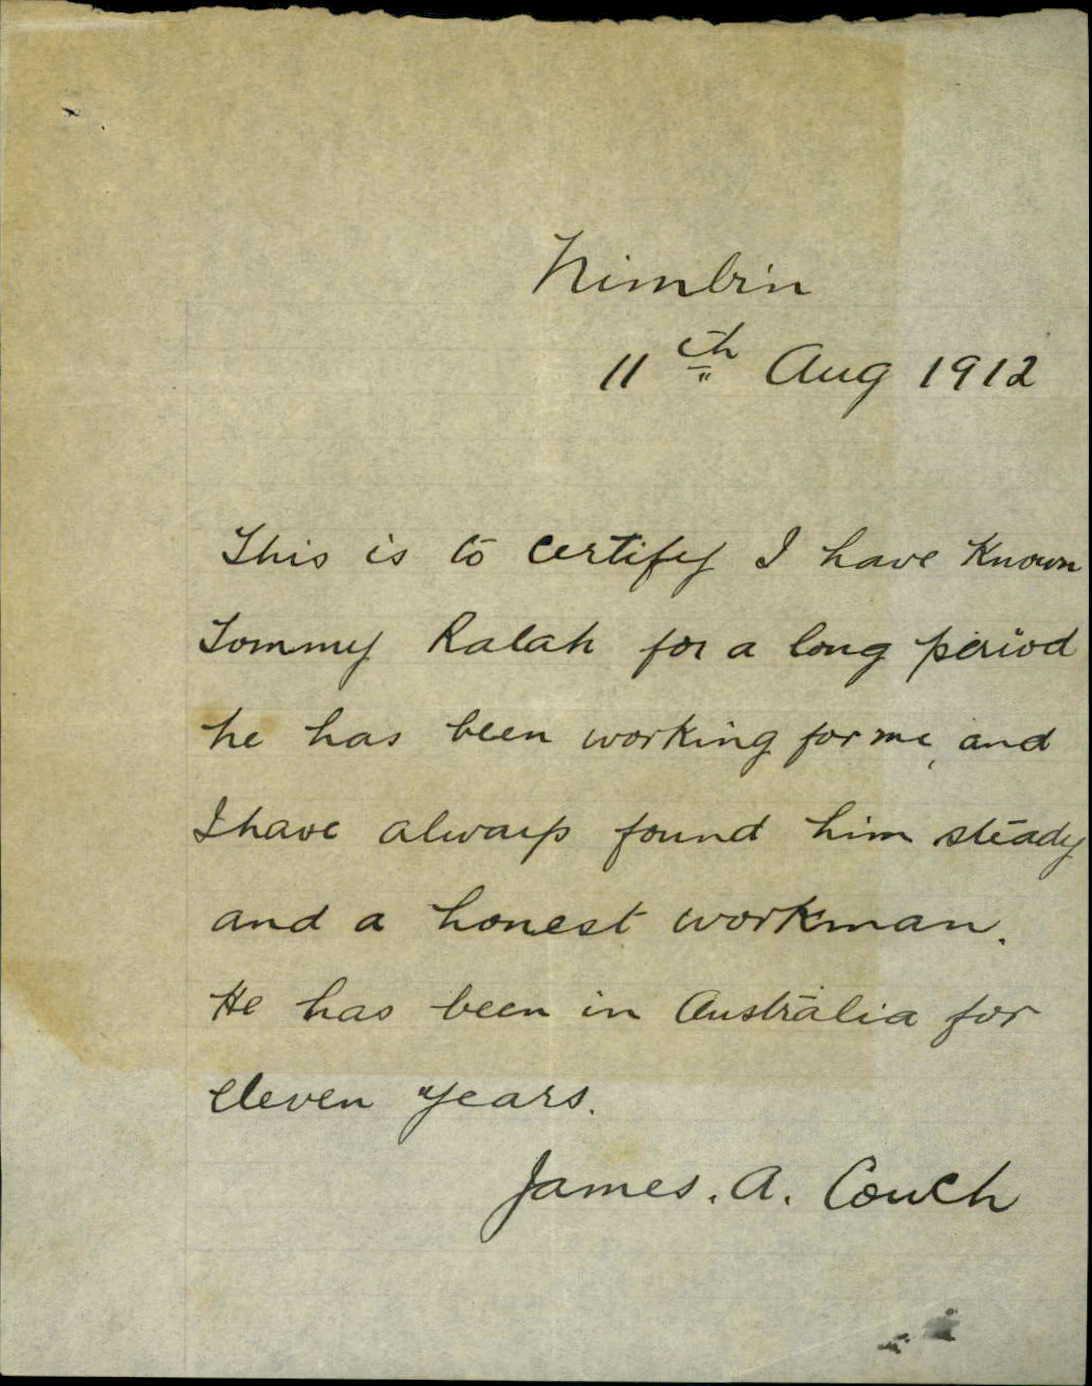 Nimbin
11th Aug 1912
This is to certify I have Known
Tommy Ralah for a long period
he has been working for me, and
I have always found him steady
and a honest workman.
He has been in Australia for
eleven years.
James. A. Couch